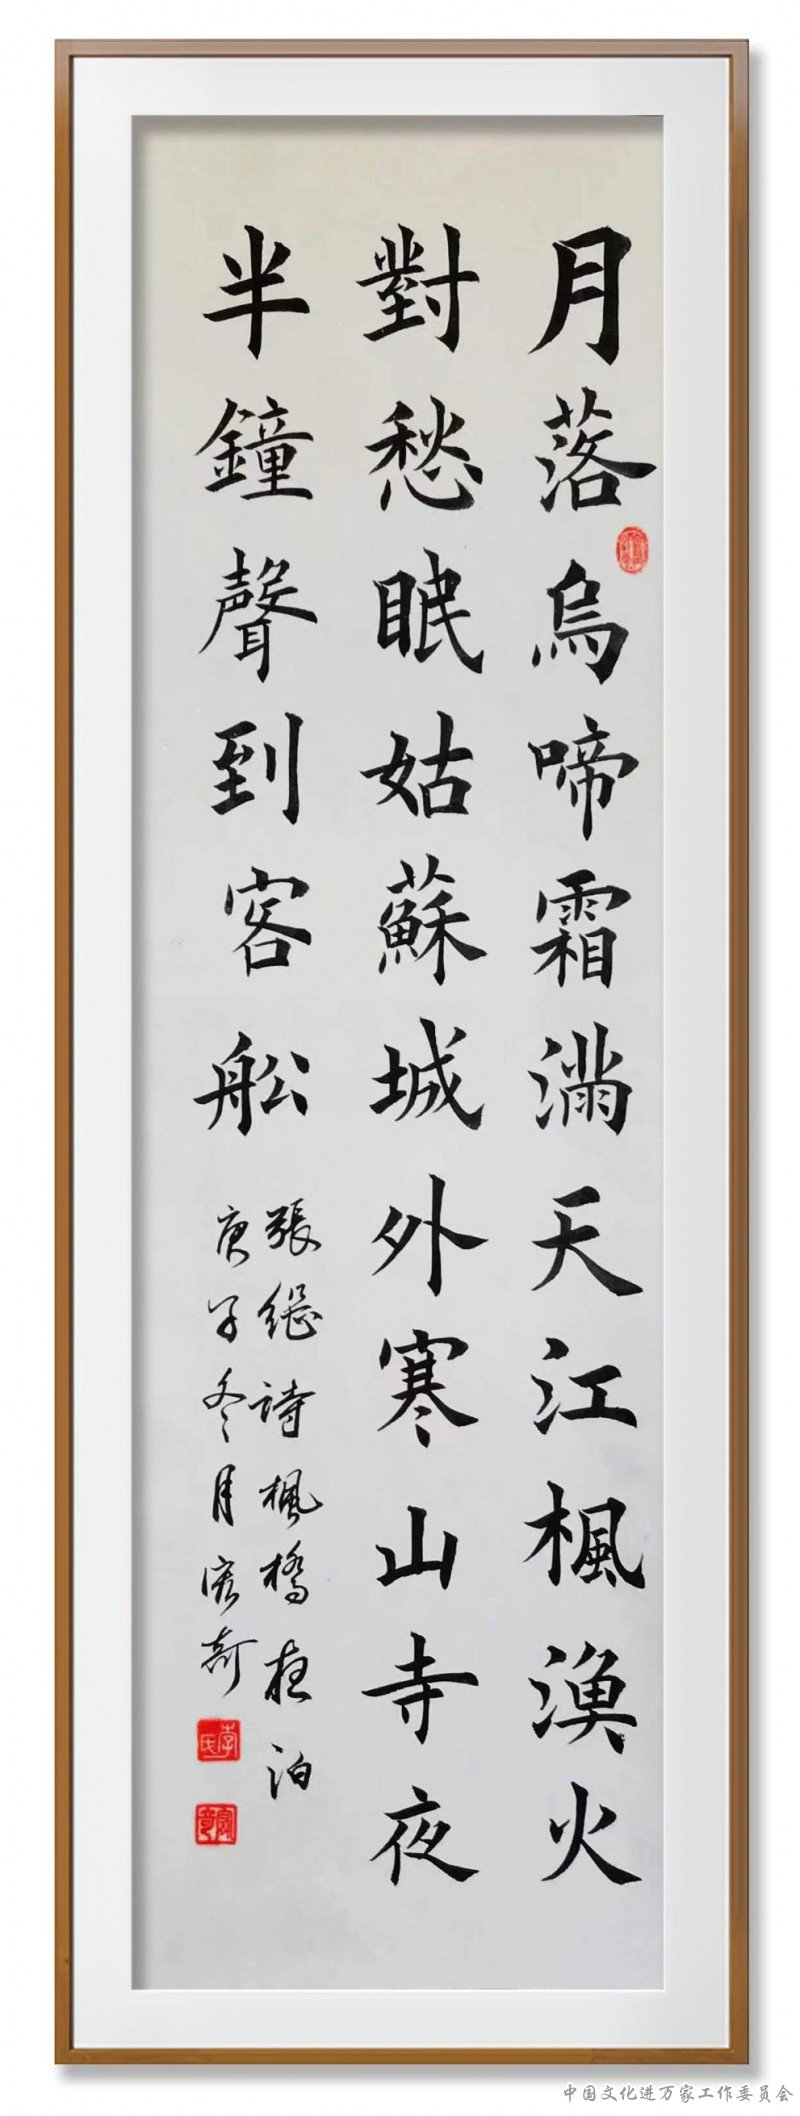 月落烏啼霜滿天江楓漁火
對愁眠姑蘇城外寒山寺夜
半鐘聲到客舩
張繼詩楓橋夜泊
庚子冬月奇
李氏
中国文化进万家工作委员会